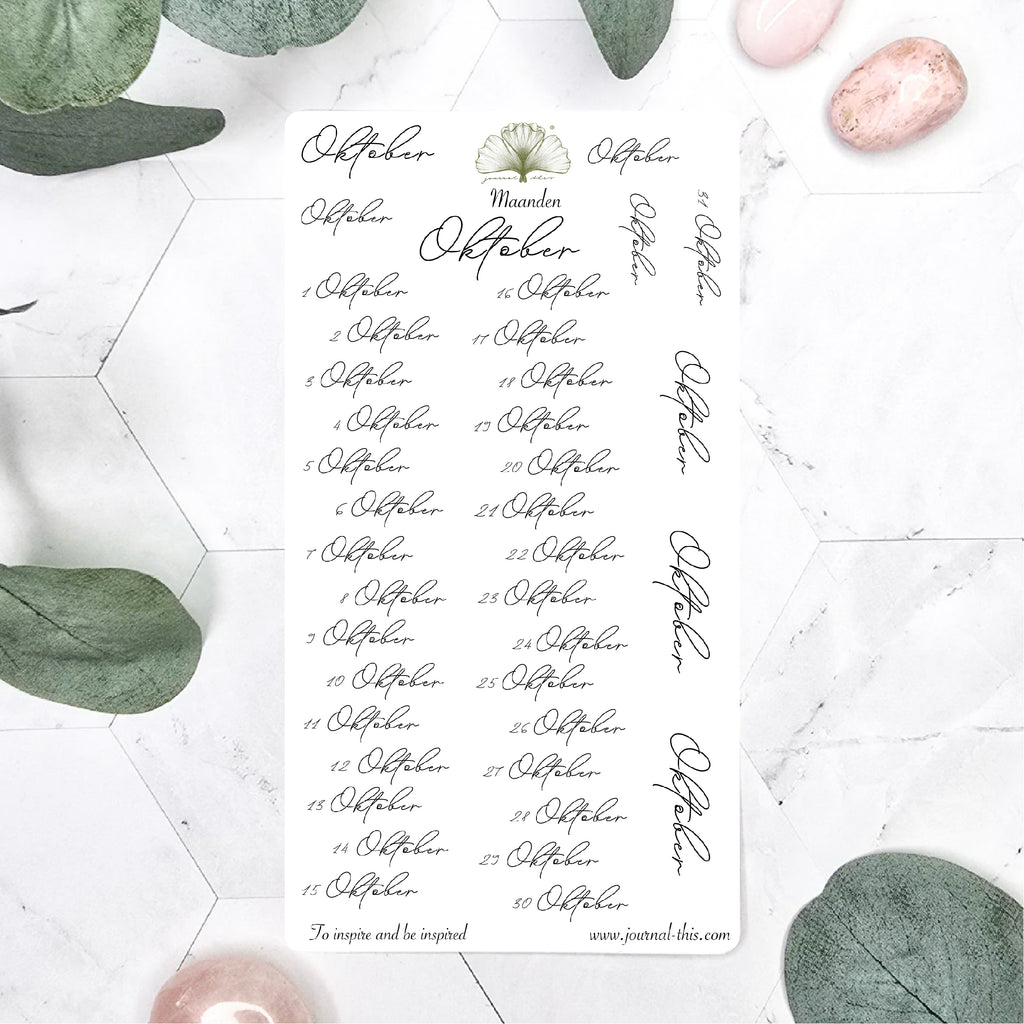 Oktober
journal this
Oktober
Maanden
Oktober
Oktober
1 Oktober
2 Oktober
3 Oktober
4 Oktober
5 Oktober
6 Oktober
7 Oktober
8 Oktober
9 Oktober
10 Oktober
11 Oktober
12 Oktober
13 Oktober
14 Oktober
15 Oktober
16 Oktober
17 Oktober
18 Oktober
19 Oktober
20 Oktober
21 Oktober
22 Oktober
23 Oktober
24 Oktober
25 Oktober
26 Oktober
27 Oktober
28 Oktober
29 Oktober
30 Oktober
Oktober
31 Oktober
Oktober
Oktober
Oktober
To inspire and be inspired
www.journal-this.com